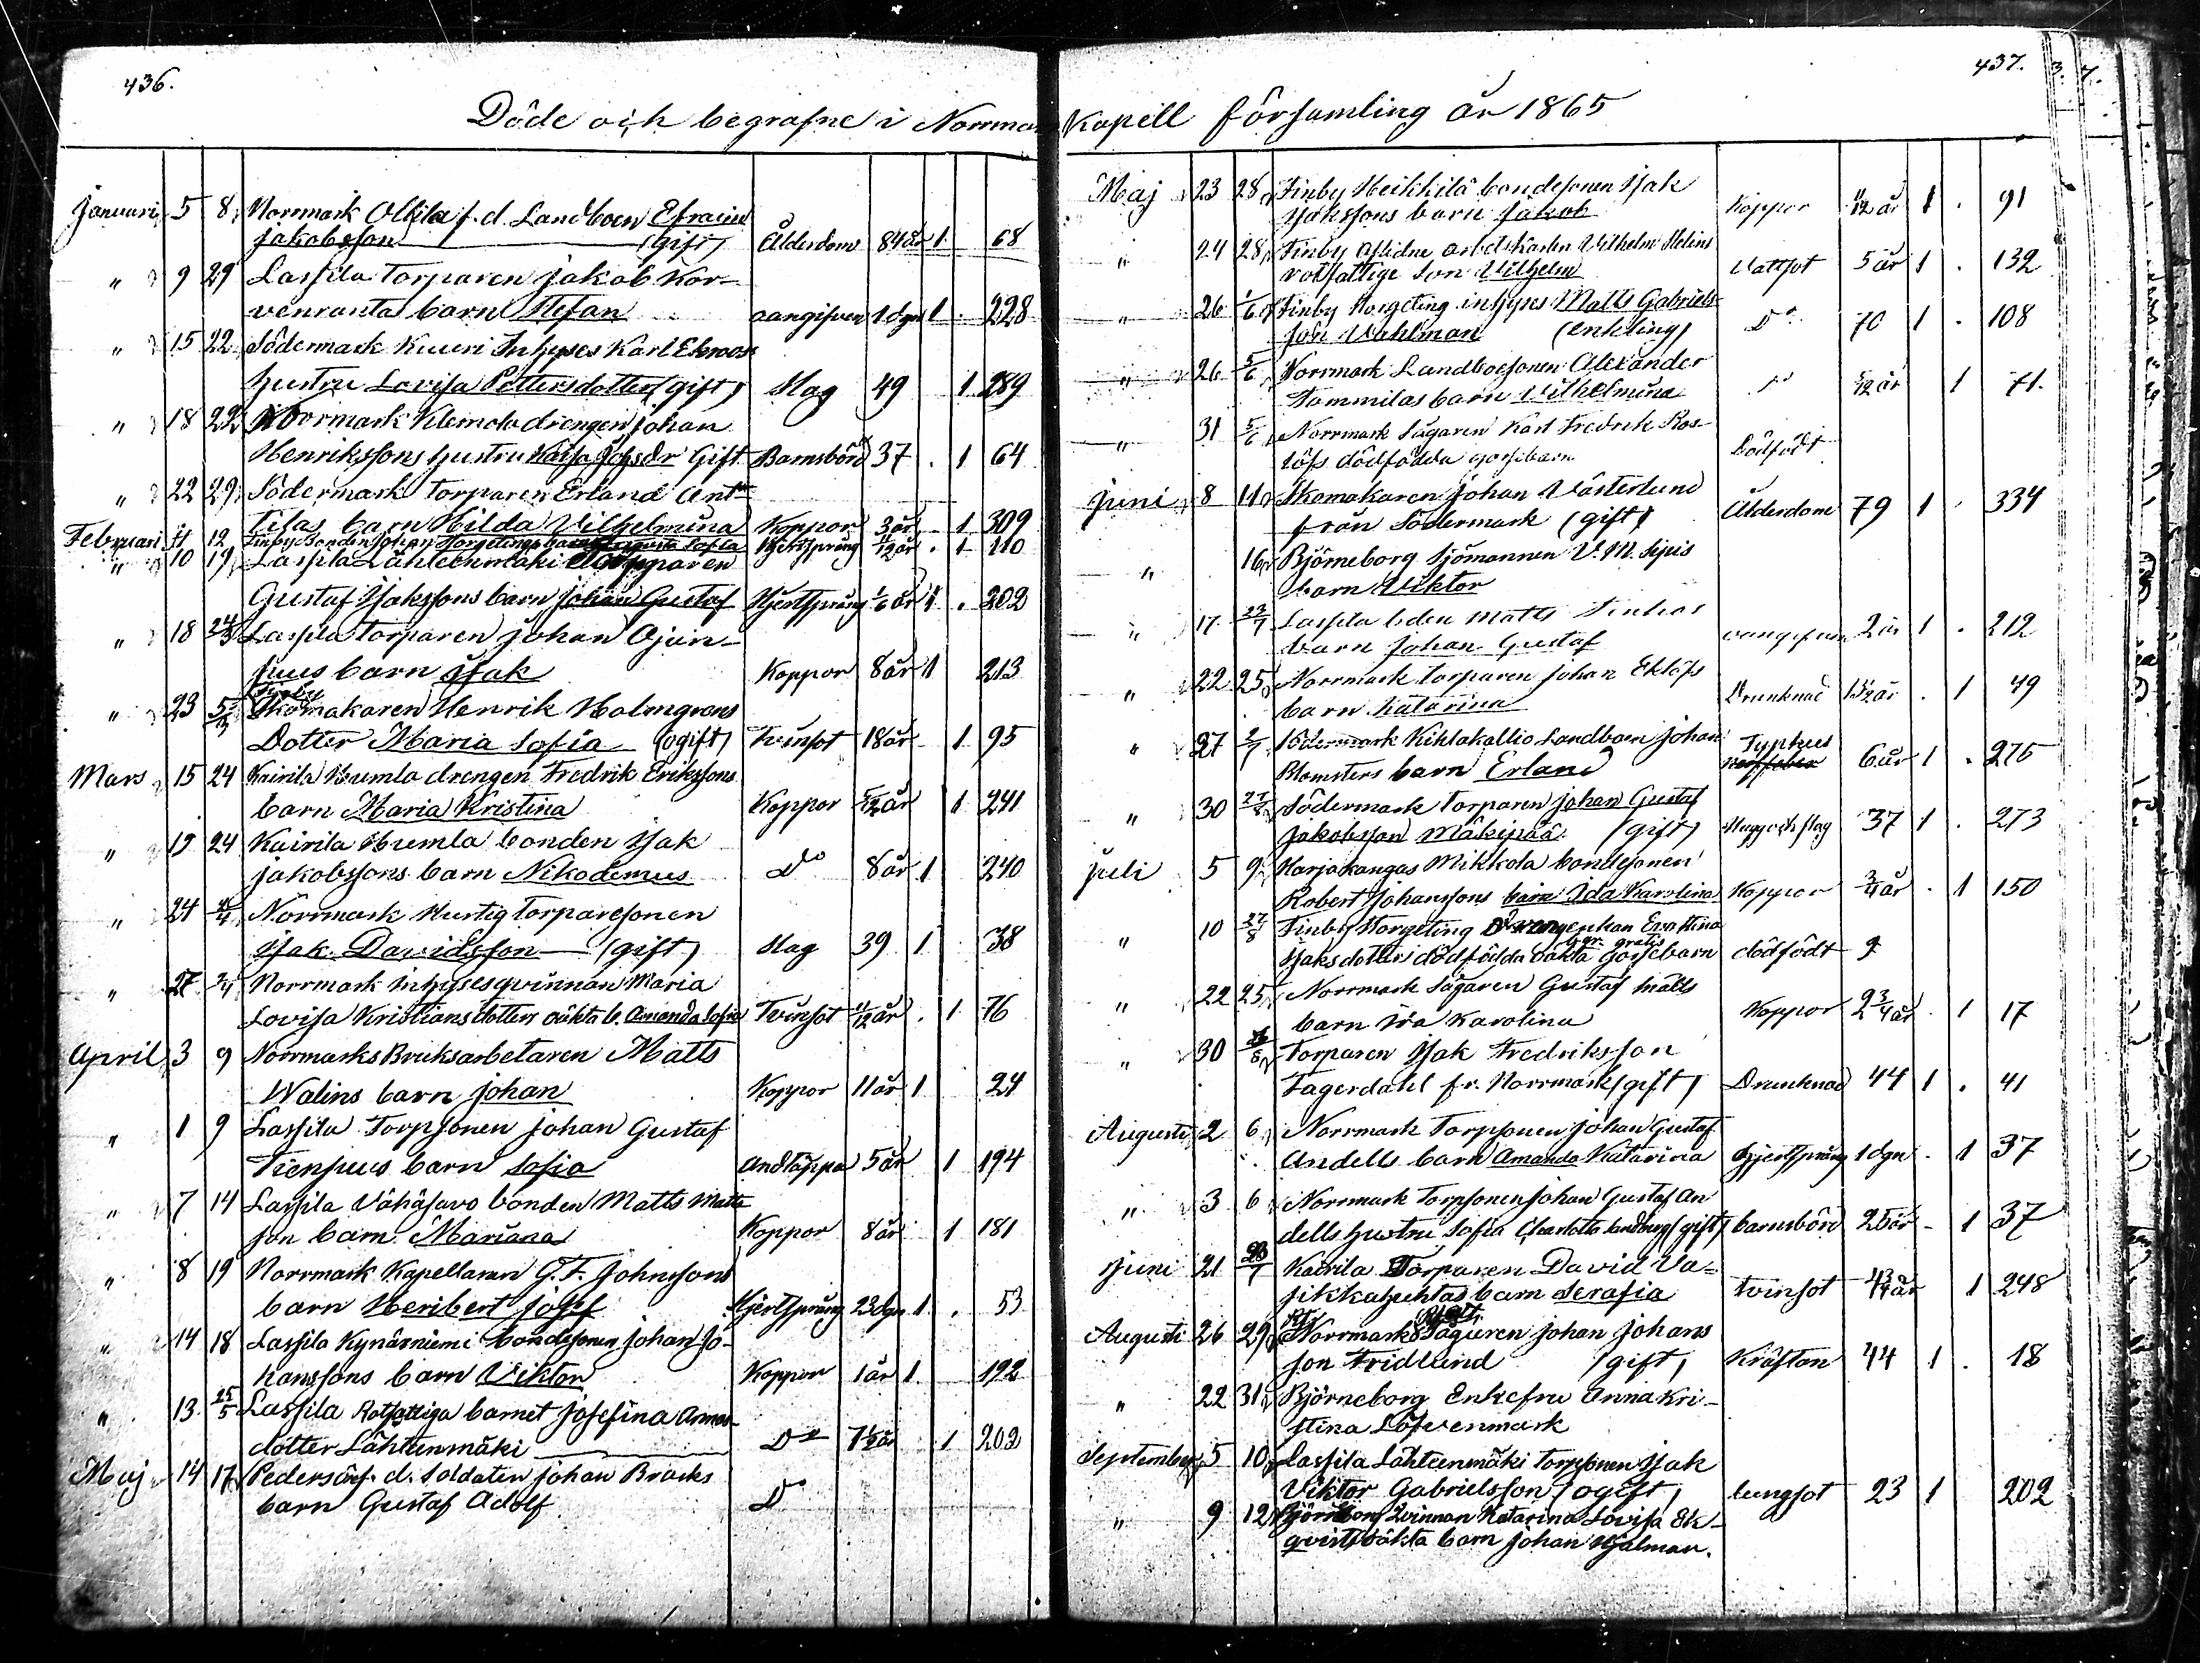 436.
Döde och begrafne i Norrmark
Januari 5 8 Norrmark Ollila f. d. Landboen Efraim
Jakobsson (gift) Ålderdom 84 år 1 68
" 9 29 Lassila Torparen Jakob Kor-
venranta barn Stefan oangifven 1 dgn 1 . 228
" 15 22 Södermark Kuuri Inhyses Karl Ekroos
hustru Lovisa Pettersdotter (gift) Slag 49 1 289
" 18 22 Norrmark Klemola drengen Johan
Henrikssons hustru Kaisa Johsdr Gift Barnsbörd 37 . 1 64
" 22 29 Södermark Torparen Erland Ant-
tilas barn Hilda Vilhelmina Koppor 3 år 1 309
Februari 11 12 Finby Bonden Johan Horgelings barn Augusta Sofia Hjertsprång 11/12 år . 1 110
" 10 19 Lassila Lähteenmäki Torparen
Gustaf Isakssons barn Johan Gustaf Hjertsprång 1/6 år 1 . 202
" 18 24/3 Lassila Torparen Johan Ojan-
suus barn Isak Koppor 8 år 1 213
Finby
" 23 5/3 Skomakaren Henrik Holmgrens
Dotter Maria Sofia (ogift) Tvinsot 18 år 1 95
Mars 15 24 Kairila Humla drengen Fredrik Erikssons
barn Maria Kristina Koppor 5/12 år 1 241
" 19 24 Kairila Humla bonden Isak
Jakobssons barn Nikodemus Do 8 år 1 240
" 24 Norrmark Hurtig Torparesonen
Isak Davidsson (gift) Slag 39 1 38
" 27 2/4 Norrmark inhysesqvinnan Maria
Lovisa Kristiansdotters oäkta b. Amanda Sofia Tvinsot 11/12 år . 1 76
April 3 9 Norrmarks Bruksarbetaren Matts
Walins barn Johan Koppor 11 år 1 24
" 1 9 Lassila Torpsonen Johan Gustaf
Tiensuus barn Sofia Andtäppa 5 år 1 194
" 7 14 Lassila Vähäsavo bonden Matts Matts
son barn Mariana Koppor 8 år 1 181
" 8 19 Norrmark Kapellanen G. F. Johnssons
barn Heribert Josef Hjertsprång 23 dgr 1 . 53
" 14 18 Lassila Kynäsniemi bondesonen Johan Jo-
hanssons barn Viktor Koppor 1 år 1 192
" 13 25/5 Lassila Rotfattiga barnet Josefina Annas-
dotter Lähteenmäki Do 7 1/2 år 1 202
Maj 14 17 Pedersöre f. d. Soldaten Johan Bracks
barn Gustaf Adolf Do
437.
Kapell församling år 1865
Maj 23 28 Finby Heikkilä bondesonen Isak
Isakssons barn Jakob Koppor 11/12 år 1 . 91
" 24 28 Finby Aflidne arbetskarlen Wilhelm Helins
rotfattige son Wilhelm Vattsot 5 år 1 . 132
" 26 1/6 Finby Horgeling inhyses Matts Gabriels-
son Wahlman (enkling) Do 70 1 . 108
" 26 5/6 Norrmark Landboesonen Alexander
Tommilas barn Vilhelmina 1 71.
" 31 5/6 Norrmark Sågaren Karl Fredrik Ros-
löfs dödfödda gossebarn Dödfödt
Juni 8 11 Skomakaren Johan Västerlund
från Södermark (gift) Ålderdom 79 1 . 334
" 16 Björneborg Sjömannen V. M. Sipis
barn Viktor
" 17 23/7 Lassila Matts
barn Johan Gustaf oangifven 2 år 1 . 212
" 22 25 Norrmark Torparen Johan Eklöfs
barn Katarina Drunknad 1 1/2 år . 1 49
" 27 2/7 Södermark Kihlakallio Landboen Johan Typhus
Blomsters barn Erland 6 år 1 . 275
" 30 Södermark Torparen Johan Gustaf
Jakobsson Mäkipää (gift) Slag 37 1 . 273
Juli 5 9 Harjakangas Mikkola bondesonen
Robert Johanssons barn Ida Karolina Koppor 3/4 år . 1 150
" 10 27/8 Finby Horgeling Drengenkan Eva Stina
bgr. gratis
Isaksdotters dödfödda oäkta gossebarn dödfödt
" 22 25 Norrmark Sågaren Gustaf Malls
barn Ida Karolina Koppor 2 3/4 år . 1 17
" 30 6/8 Torparen Isak Fredriksson
Fagerdahl fr. Norrmark (gift) Drunknad 44 1 . 41
Augusti 2 6 Norrmark Torpsonen Johan Gustaf
Andells barn Amanda Katarina Hjertsprång 1 dgn . 1 37
" 3 6 Norrmark Torpsonen Johan Gustaf An
dells hustru Sofia Charlotta Lindberg (gift) barnsbörd 25 år - 1 37
Juni 21 23/7 Kairila Torparen David Va-
sikkahuhtas barn Serafia tvinsot 4 3/4 år 1 248
Augusti 26 29 Norrmark Sågaren Johan Johans
son Fridlund (gift) Kräftan 44 1 . 18
" 22 31 Björneborg Enkefru Anna Kri-
stina Löfvenmark
September 5 10 Lassila Lähteenmäki Torpsonen Isak
Viktor Gabrielsson (ogift) lungsot 23 1 202
" 9 12 Björneborg Qvinnan Katarina Lovisa Ek-
qvists oäkta barn Johan Hjalmar.